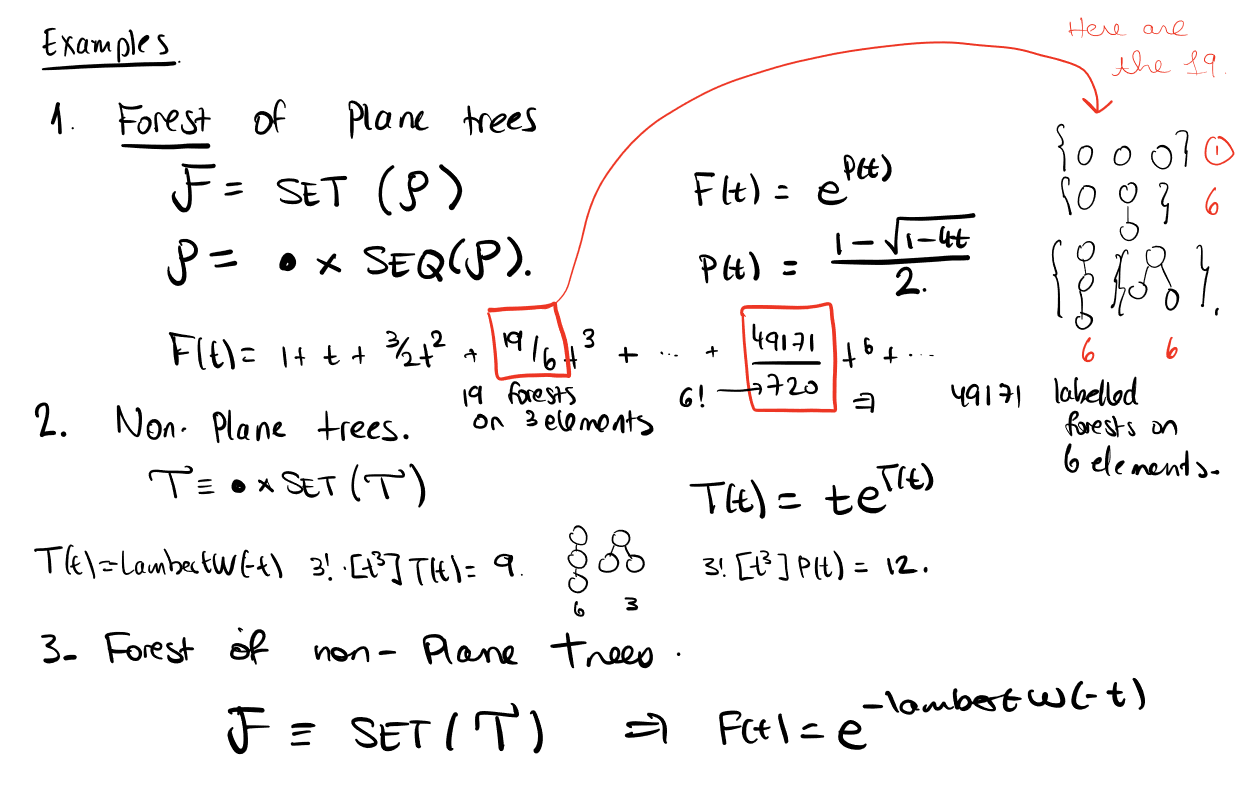 Examples
Here are
the 19.
1. Forest of Plane trees
F = SET (P)
F(t) = e^{P(t)}
P = • × SEQ(P).
P(t) = \frac{1-\sqrt{1-4t}}{2.}
{o o o} ①
{o } 6
{ } { }.
6 6
F(t) = 1 + t + 3/2 t^2 + 19/6 t^3 + ... + \frac{49171}{720} t^6 + ...
19 forests
on 3 elements
6! → 720 ⇒ 49171 labelled
forests on
6 elements.
2. Non-Plane trees.
T ≡ • × SET(T)
T(t) = te^{T(t)}
T(t)=LambertW(-t) 3!·[t^3] T(t) = 9. 3! [t^3] P(t) = 12.
6 3
3- Forest of non-Plane trees.
F ≡ SET(T) ⇒ F(t) = e^{-lambertW(-t)}